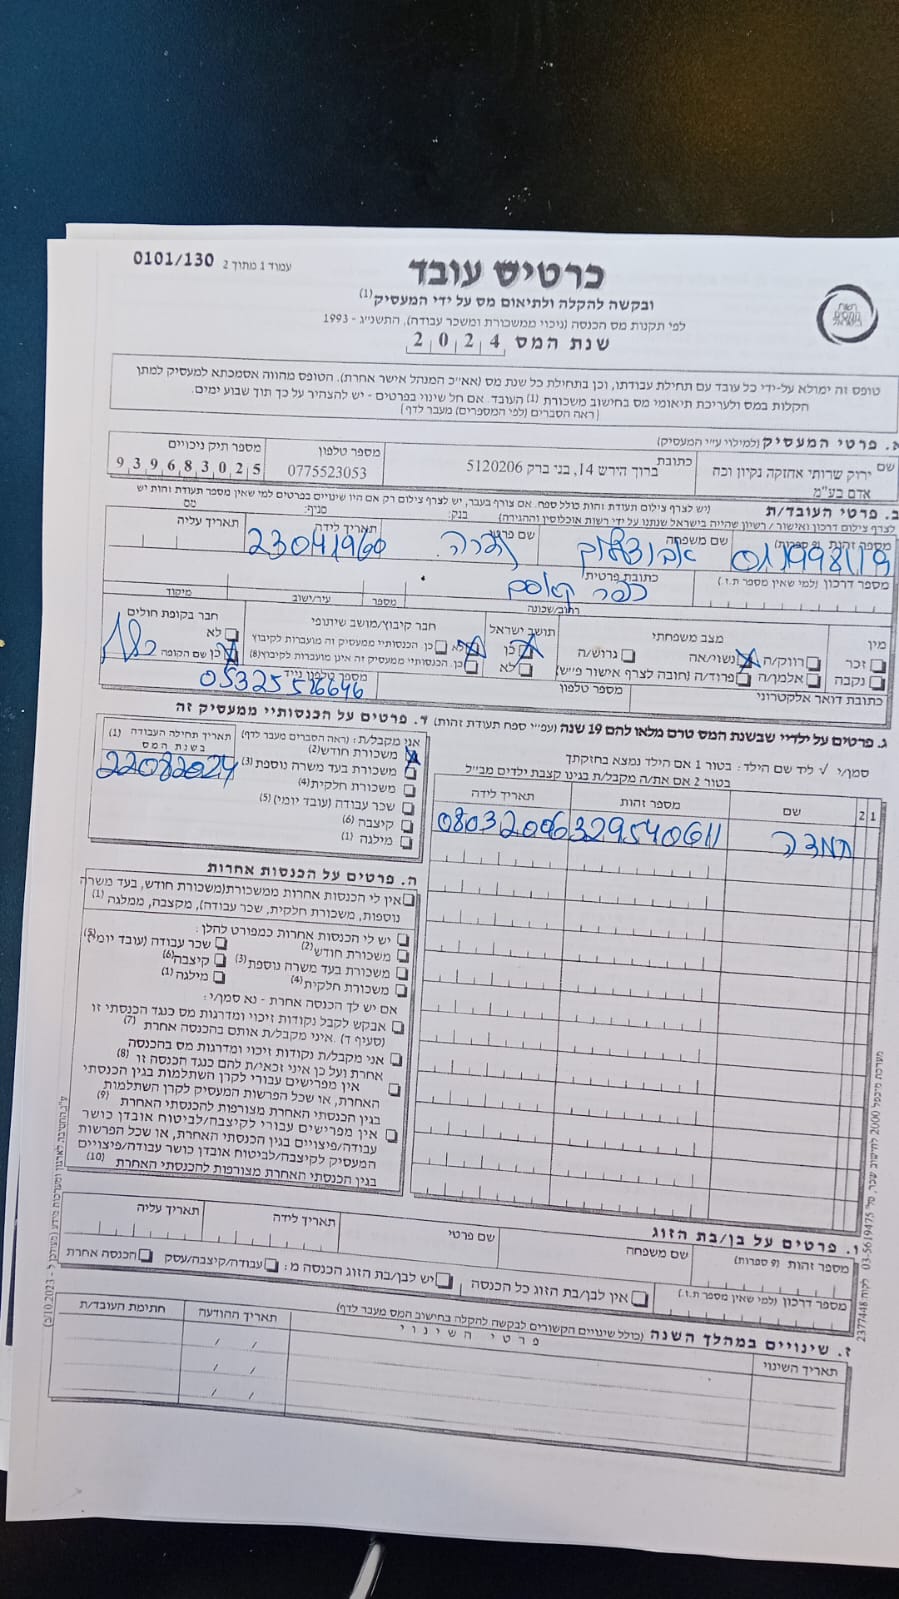 0101/130
עמוד 1 מתוך 2
כרטיס עובד
ובקשה להקלה ולתיאום מס על ידי המעסיק(1)
לפי תקנות מס הכנסה (ניכוי ממשכורת ומשכר עבודה), התשנ״ג - 1993
שנת המס 2024
רשות המסים בישראל
טופס זה ימולא על-ידי כל עובד עם תחילת עבודתו, וכן בתחילת כל שנת מס (אא״כ המנהל אישר אחרת). הטופס מהווה אסמכתא למעסיק למתן
הקלות במס ולעריכת תיאומי מס בחישוב משכורת (1) העובד. אם חל שינוי בפרטים - יש להצהיר על כך תוך שבוע ימים.
(ראה הסברים (לפי המספרים) מעבר לדף)
א. פרטי המעסיק (למילוי ע״י המעסיק)
שם
ירוק שרותי אחזקה נקיון וכח
אדם בע״מ
כתובת
ברוך הירש 14, בני ברק 5120206
מספר טלפון
0775523053
מספר תיק ניכויים
939683025
ב. פרטי העובד/ת
(יש לצרף צילום תעודת זהות כולל ספח. אם צורף בעבר, יש לצרף צילום רק אם היו שינויים בפרטים למי שאין מספר תעודת זהות יש
לצרף צילום דרכון ואישור / רשיון שהייה בישראל שנתנו על ידי רשות אוכלוסין וההגירה)
בנק:
סניף:
מספר זהות (9 ספרות)
שם משפחה
שם פרטי
תאריך לידה
23041960
תאריך עליה
מספר דרכון (למי שאין מספר ת.ז.)
כתובת פרטית
כפר קאסם
רחוב/שכונה
מספר
עיר/ישוב
מיקוד
מין
זכר
נקבה
מצב משפחתי
רווק/ה
נשוי/אה
גרוש/ה
אלמן/ה
פרוד/ה (חובה לצרף אישור פ״ש)
תושב ישראל
כן
לא
חבר קיבוץ/מושב שיתופי
לא
כן. הכנסותיי ממעסיק זה מועברות לקיבוץ
כן. הכנסותיי ממעסיק זה אינן מועברות לקיבוץ(8)
חבר בקופת חולים
לא
כן שם הקופה
כללית
כתובת דואר אלקטרוני
מספר טלפון
מספר טלפון נייד
ג. פרטים על ילדיי שבשנת המס טרם מלאו להם 19 שנה (עפ״י ספח תעודת זהות)
סמן/י √ ליד שם הילד: בטור 1 אם הילד נמצא בחזקתך
בטור 2 אם את/ה מקבל/ת בגינו קצבת ילדים מבל״ל
1 2
שם
מספר זהות
תאריך לידה
329540611
08032006
ד. פרטים על הכנסותיי ממעסיק זה
אני מקבל/ת: (ראה הסברים מעבר לדף)
משכורת חודש(2)
משכורת בעד משרה נוספת(3)
משכורת חלקית(4)
שכר עבודה (עובד יומי)(5)
קיצבה(6)
מילגה(1)
תאריך תחילת העבודה (1)
בשנת המס
22082024
ה. פרטים על הכנסות אחרות
אין לי הכנסות אחרות ממשכורת(משכורת חודש, בעד משרה
נוספות, משכורת חלקית, שכר עבודה), מקצבה, ממלגה(1)
יש לי הכנסות אחרות כמפורט להלן:
משכורת חודש(2)
שכר עבודה (עובד יומי)(5)
משכורת בעד משרה נוספת(3)
קיצבה(6)
משכורת חלקית(4)
מילגה(1)
אם יש לך הכנסה אחרת - נא סמן/י:
אבקש לקבל נקודות זיכוי ומדרגות מס כנגד הכנסתי זו
(סעיף ד). איני מקבל/ת אותם בהכנסה אחרת(7)
אני מקבל/ת נקודות זיכוי ומדרגות מס בהכנסה
אחרת ועל כן איני זכאי/ת להם כנגד הכנסה זו(8)
אין מפרישים עבורי לקרן השתלמות בגין הכנסתי
האחרת, או שכל הפרשות המעסיק לקרן השתלמות
בגין הכנסתי האחרת מצורפות להכנסתי האחרת(9)
אין מפרישים עבורי לקיצבה/לביטוח אובדן כושר
עבודה/פיצויים בגין הכנסתי האחרת, או שכל הפרשות
המעסיק לקיצבה/לביטוח אובדן כושר עבודה/פיצויים
בגין הכנסתי האחרת מצורפות להכנסתי האחרת(10)
ו. פרטים על בן/בת הזוג
מספר זהות (9 ספרות)
שם משפחה
שם פרטי
תאריך לידה
תאריך עליה
מספר דרכון (למי שאין מספר ת.ז.)
אין לבן/בת הזוג כל הכנסה
יש לבן/בת הזוג הכנסה מ:
עבודה/קיצבה/עסק
הכנסה אחרת
ז. שינויים במהלך השנה (כולל שינויים הקשורים לבקשה להקלה בחישוב המס מעבר לדף)
תאריך השינוי
פרטי השינוי
תאריך ההודעה
חתימת העובד/ת